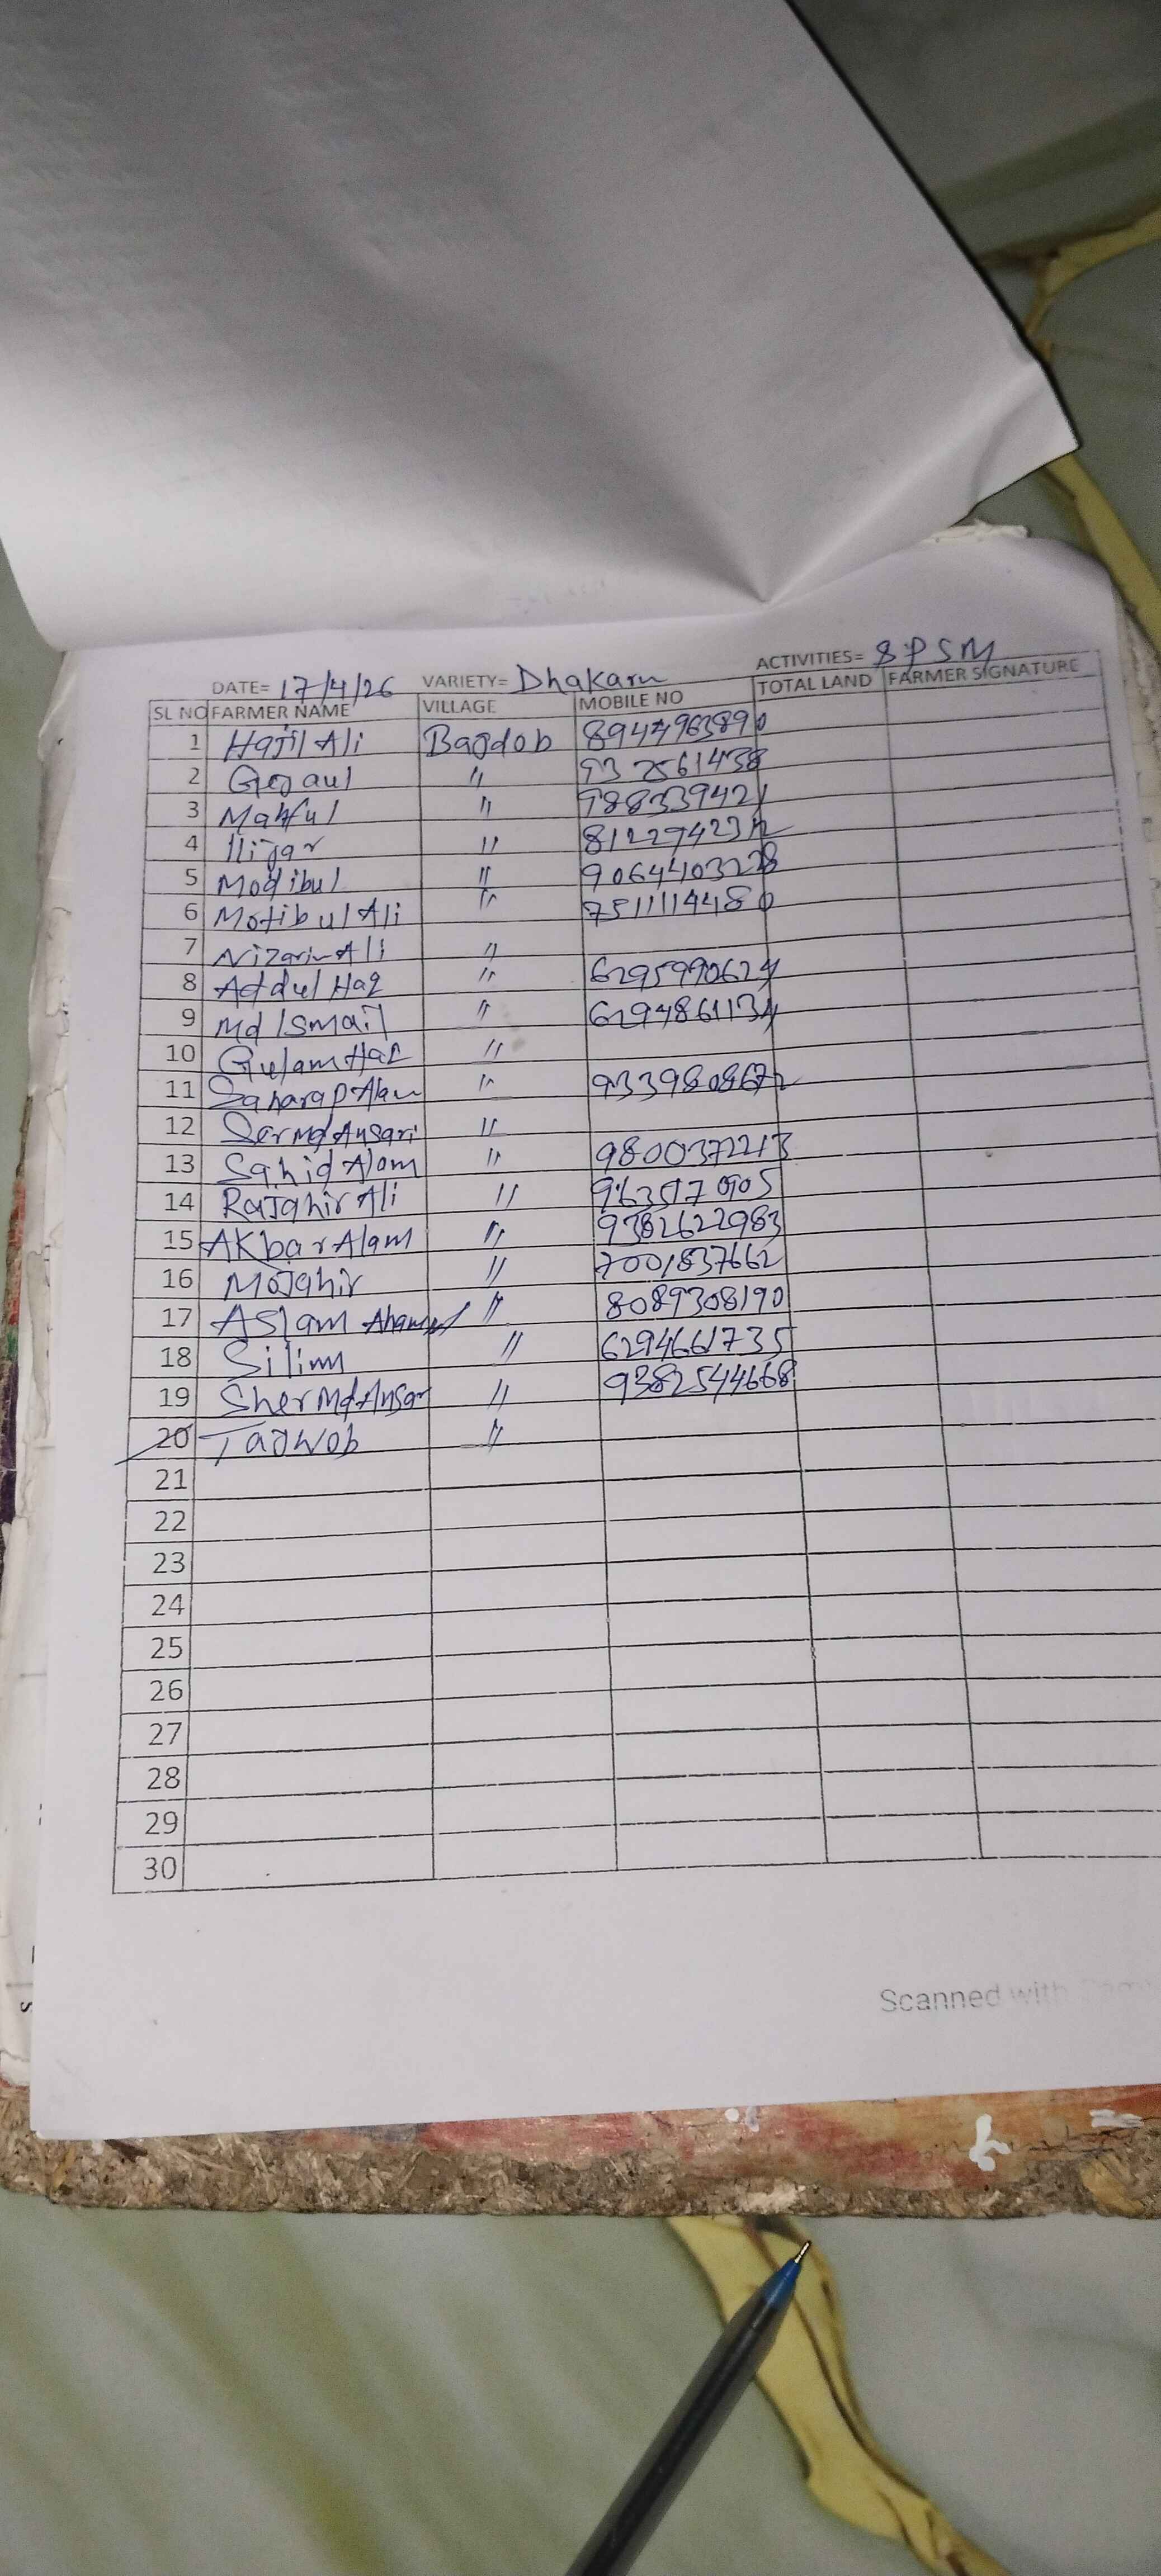 DATE= 17/4/26 VARIETY= Dhakaru ACTIVITIES= SPSM
SL NO FARMER NAME VILLAGE MOBILE NO TOTAL LAND FARMER SIGNATURE
1 Hajil Ali Bagdob 8944963890
2 Gojaul " 932561438
3 Mahful " 988339421
4 Ilijar " 8122794232
5 Modibul " 9064403228
6 Motibul Ali " 7511114480
7 Nizarin Ali "
8 Abdul Haq " 6295990624
9 Md Ismail " 6294861134
10 Gulam Haq "
11 Saharap Alam " 9339808672
12 Ser Md Ansari "
13 Sahid Alom " 9800372213
14 Rajahir Ali " 963570905
15 AKbar Alam " 9382622983
16 Mojahir " 7001837662
17 Aslam Ahamed " 8089308190
18 Silim " 6294661735
19 Sher Md Ansar " 9382544668
20 Tagwob "
21
22
23
24
25
26
27
28
29
30
Scanned with